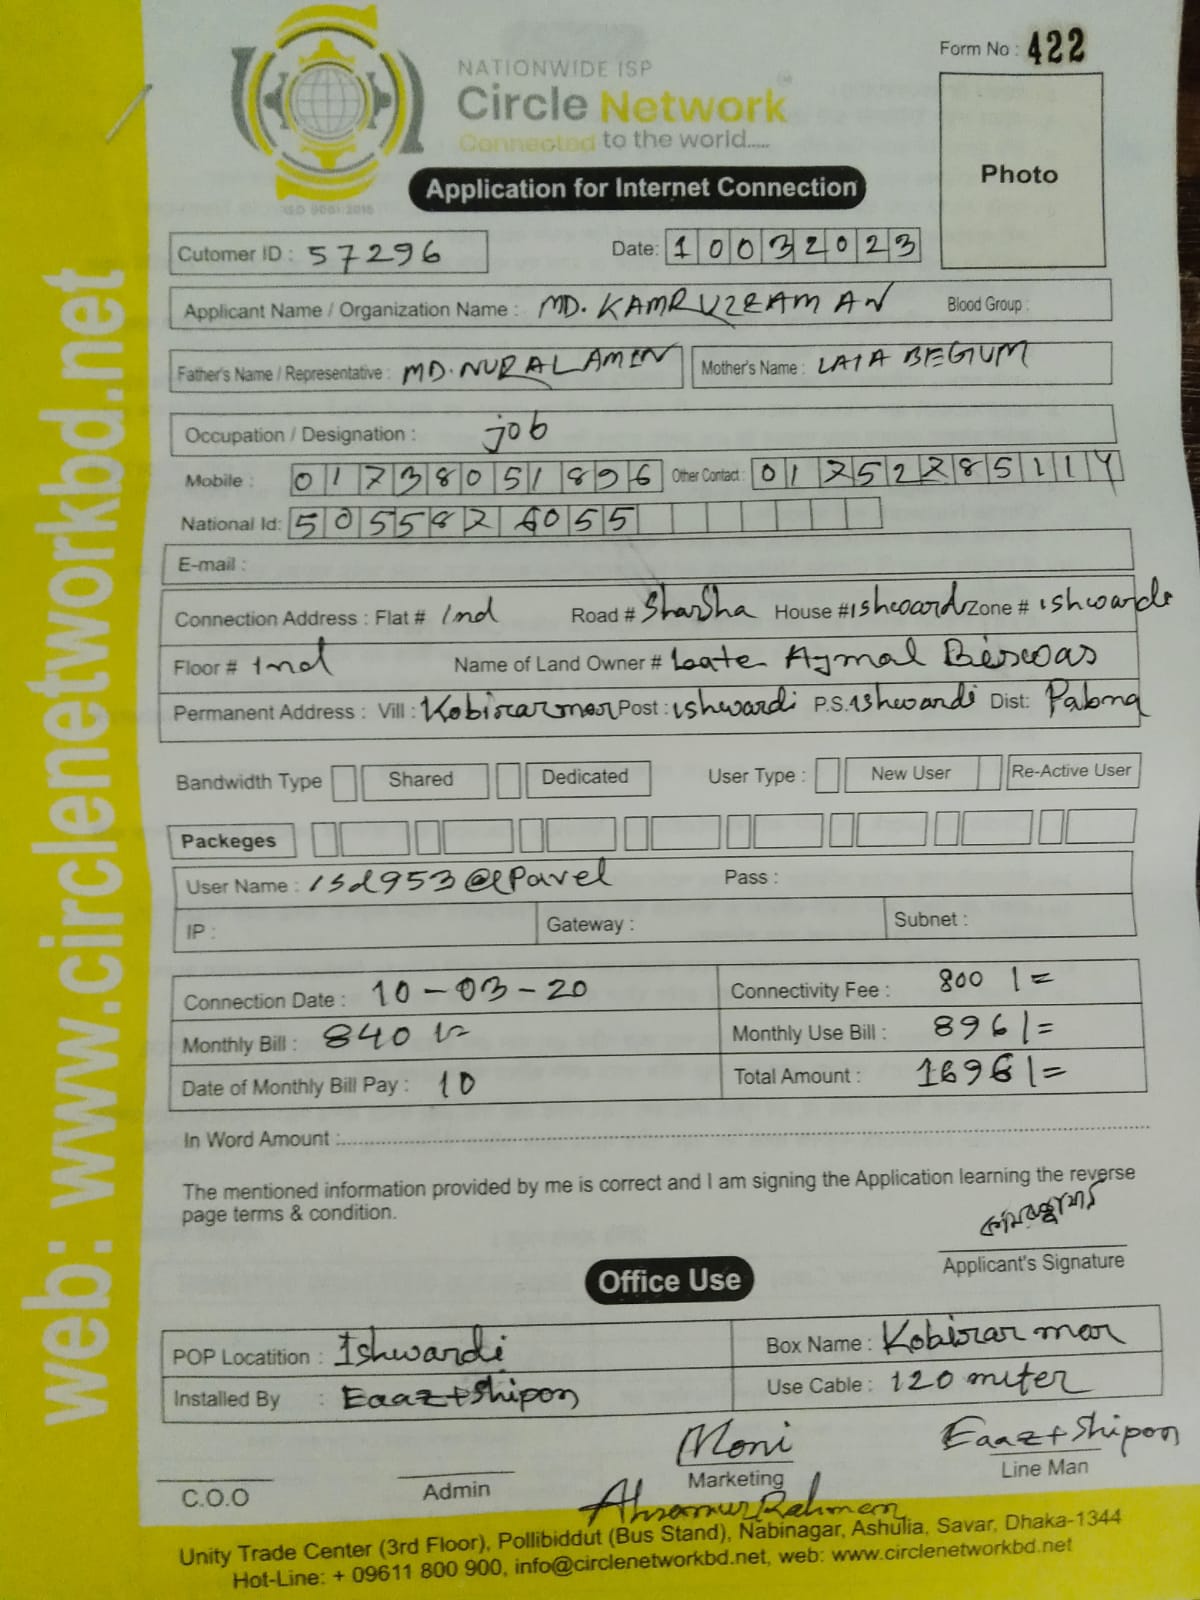 Form No : 422
NATIONWIDE ISP
Circle Network
Connected to the world.....
ISO 9001:2015
Photo
Application for Internet Connection
Cutomer ID : 57296 Date: 10032023
Applicant Name / Organization Name : MD. KAMRUZZAMAN Blood Group :
Father's Name / Representative : MD. NURALAMIN Mother's Name : LATA BEGUM
Occupation / Designation : job
Mobile : 01738051896 Other Contact : 01752285114
National Id: 5055826055
E-mail :
Connection Address : Flat # 1nd Road # Sharsha House # ishward Zone # ishwardi
Floor # 1nd Name of Land Owner # Laate Aymal Beswas
Permanent Address : Vill : Kobirarmor Post : ishwardi P.S. ishwardi Dist: Pabna
Bandwidth Type Shared Dedicated User Type : New User Re-Active User
Packeges
User Name : isd953@Pavel Pass :
IP : Gateway : Subnet :
Connection Date : 10-03-20 Connectivity Fee : 800 /=
Monthly Bill : 840 /= Monthly Use Bill : 896/=
Date of Monthly Bill Pay : 10 Total Amount : 1696/=
In Word Amount :
The mentioned information provided by me is correct and I am signing the Application learning the reverse
page terms & condition.
Applicant's Signature
Office Use
POP Locatition : Ishwardi Box Name : Kobirar mor
Installed By : Eaaz+Shipon Use Cable : 120 miter
Moni Eaaz+Shipon
C.O.O Admin Marketing Line Man
Rahman
Unity Trade Center (3rd Floor), Pollibiddut (Bus Stand), Nabinagar, Ashulia, Savar, Dhaka-1344
Hot-Line: + 09611 800 900, info@circlenetworkbd.net, web: www.circlenetworkbd.net
web: www.circlenetworkbd.net